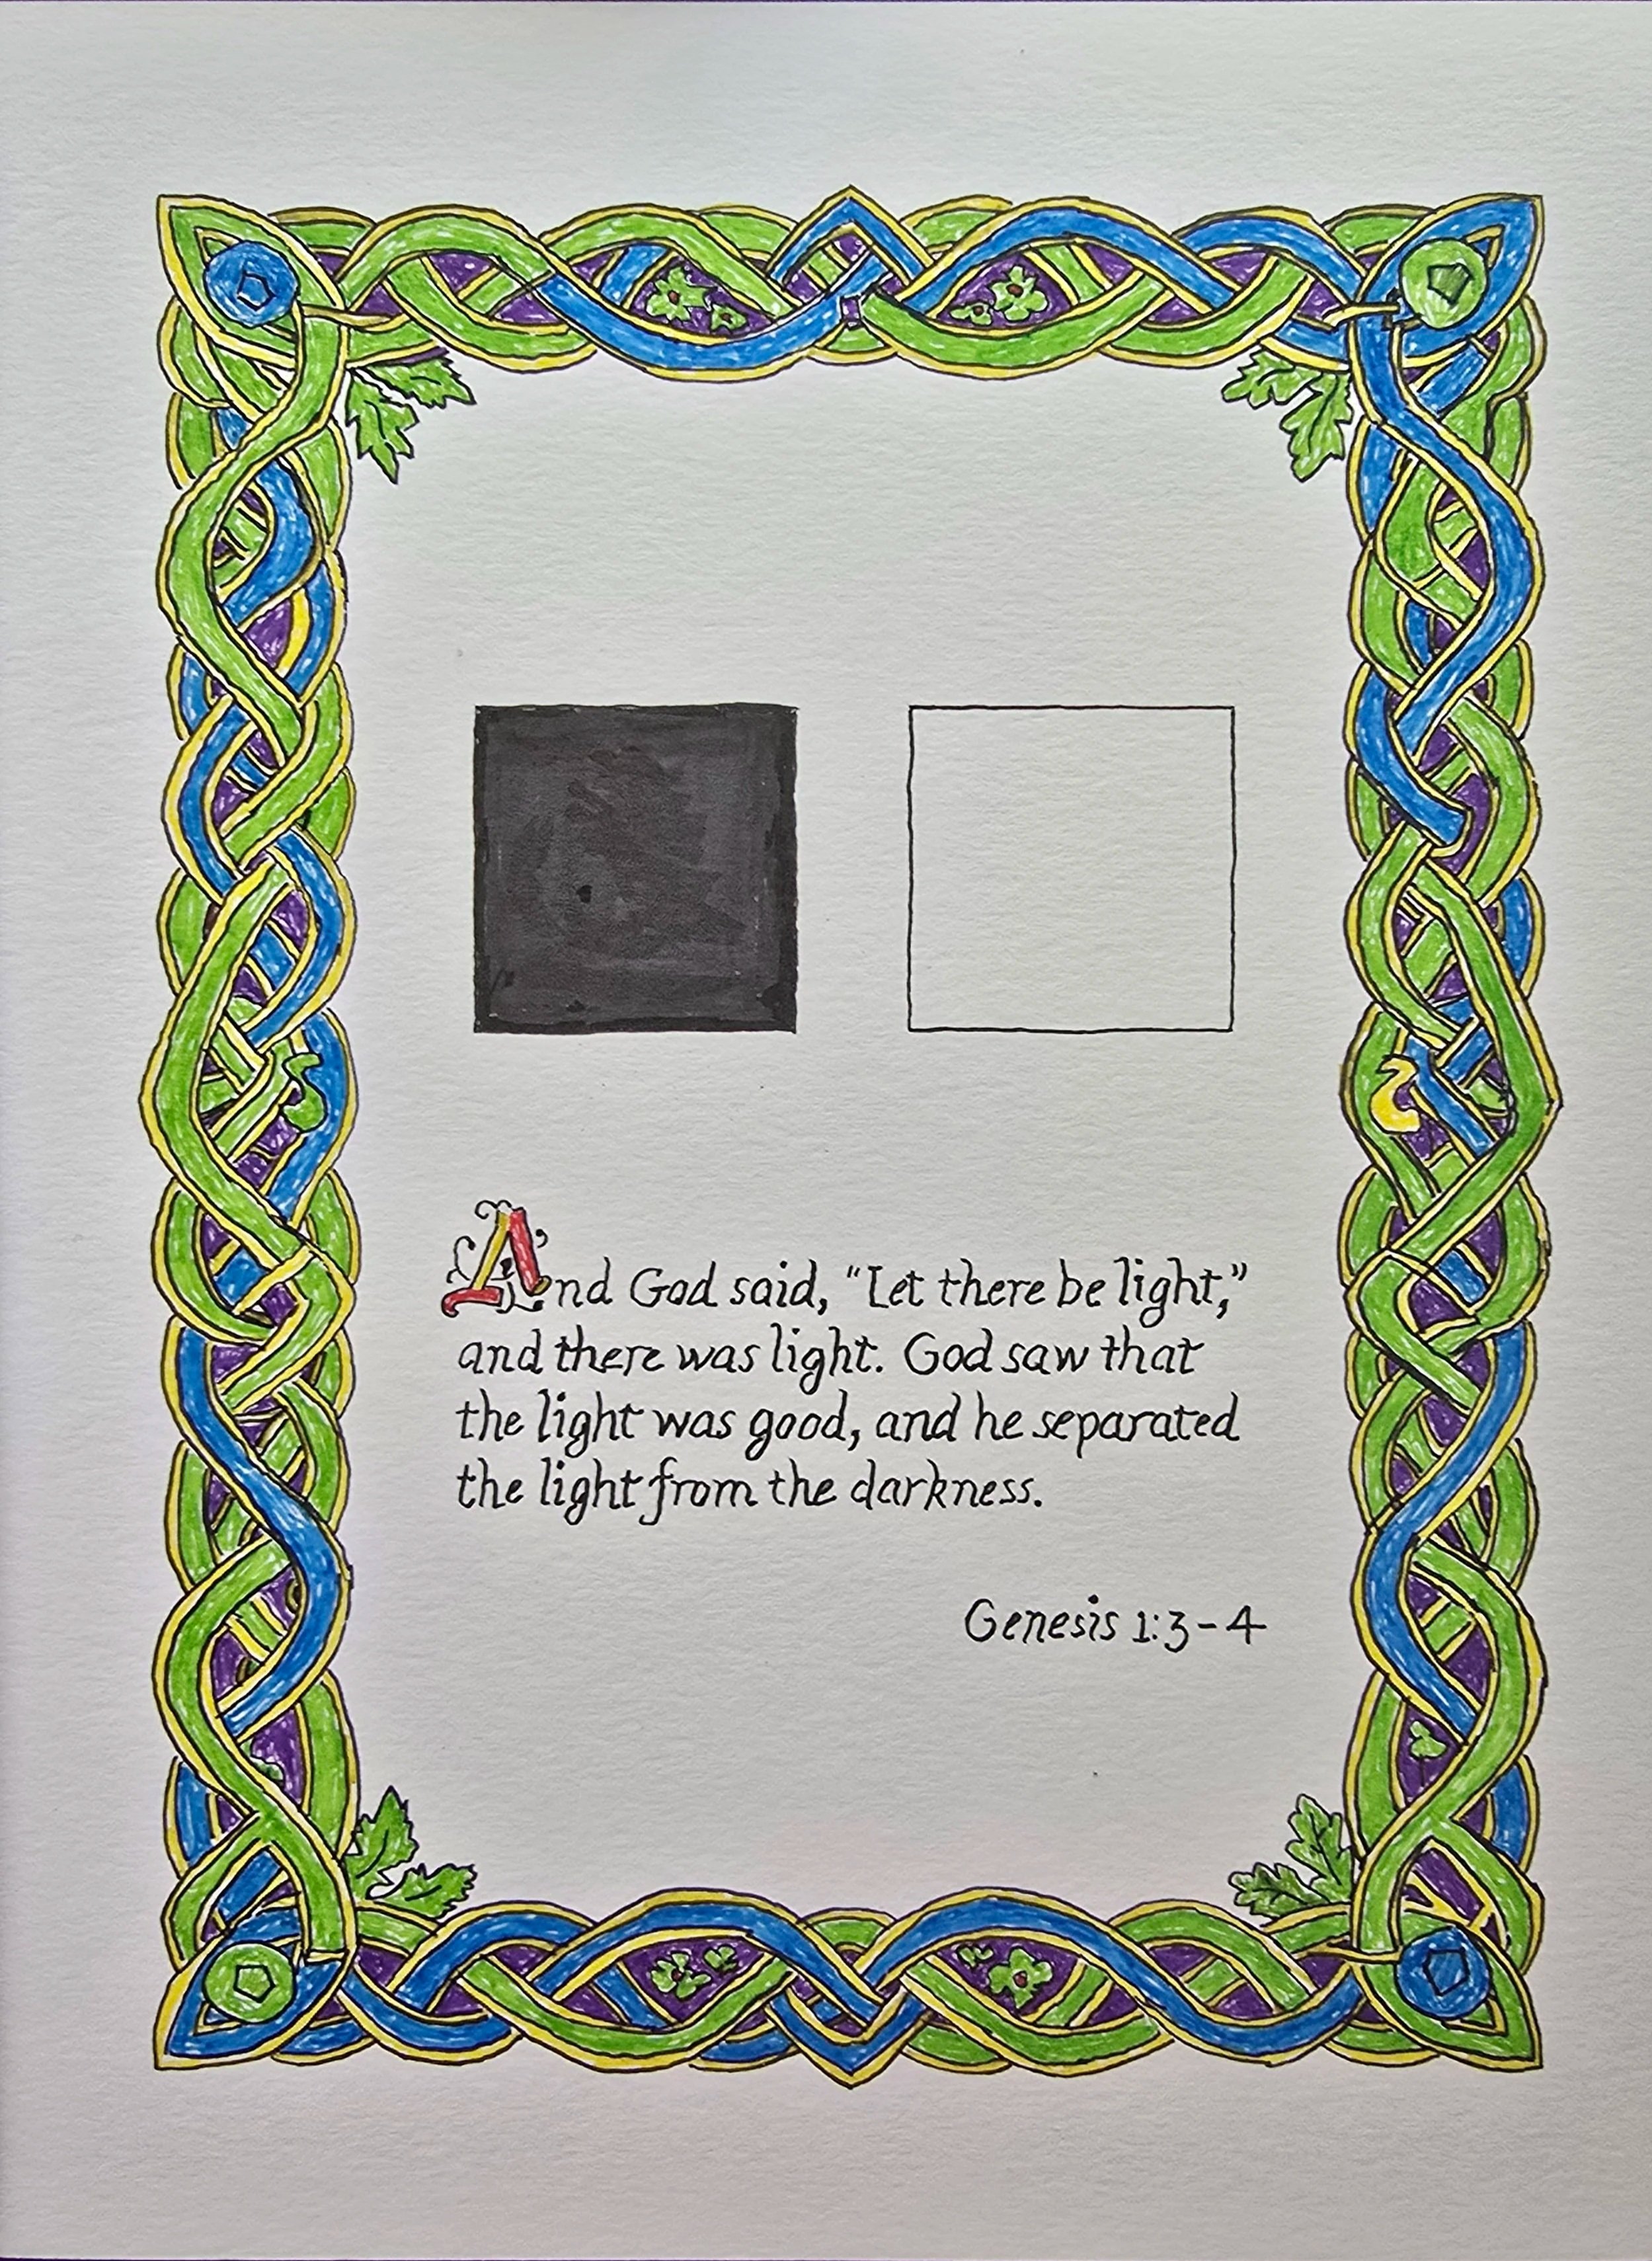 And God said, “Let there be light,”
and there was light. God saw that
the light was good, and he separated
the light from the darkness.
Genesis 1:3-4